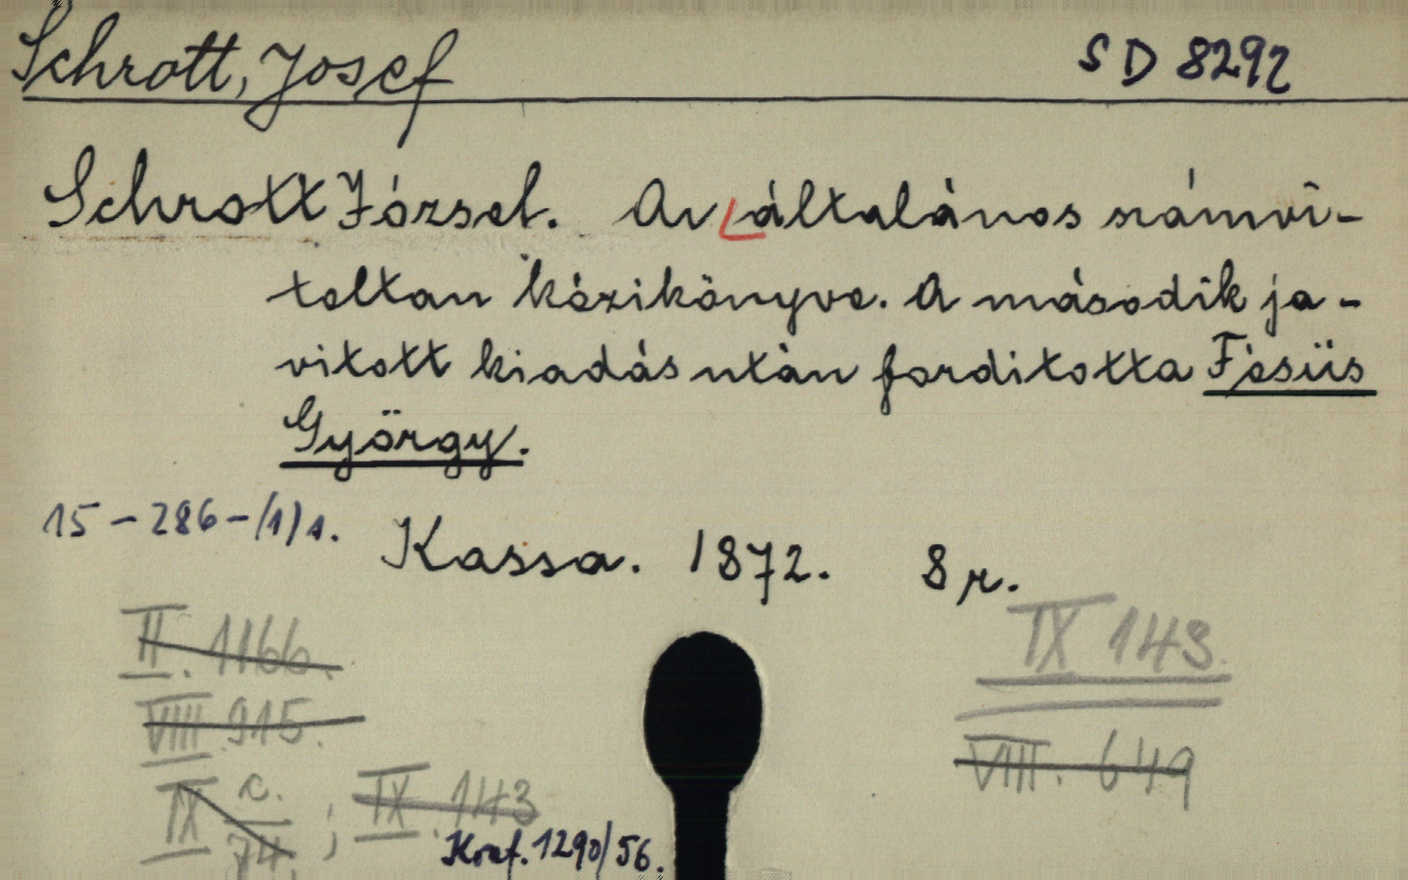 Schrott, Josef
SD 8292
Schrott József. Az általános számvi-
teltan kézikönyve. A második ja-
vitott kiadás után forditotta Fésüs
György.
15-286-(1)1.
Kassa. 1872. 8 r.
II. 1166.
IX 143.
VIII 915.
VIII. 649
IX c. ; IX. 143
74.
1290/56.